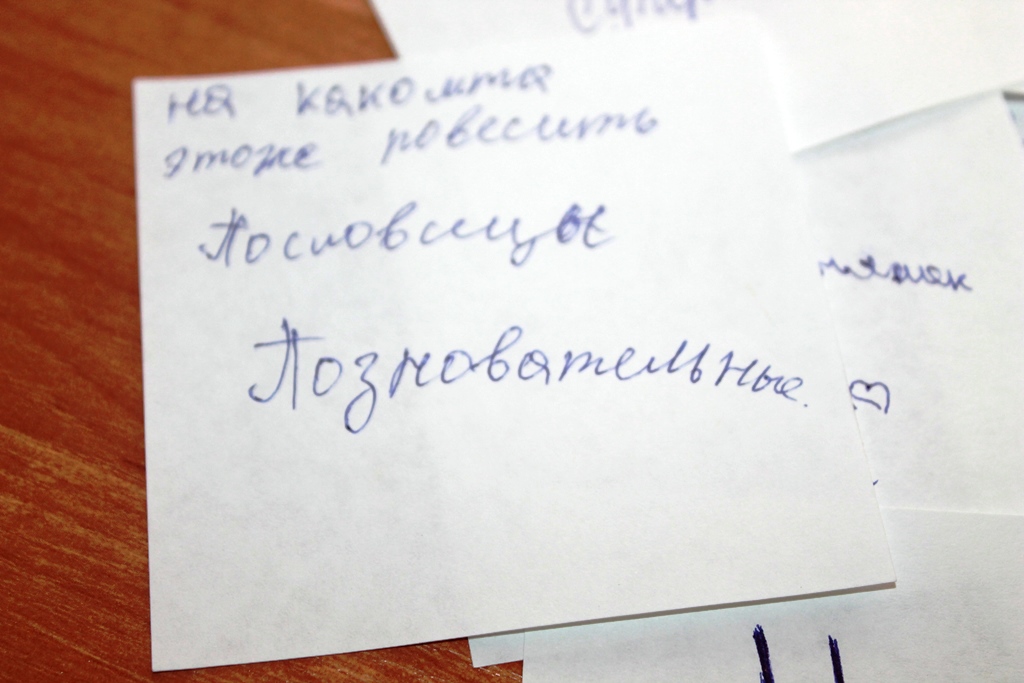 на какомта
этоже ровесить
Пословицы
Позновательные.